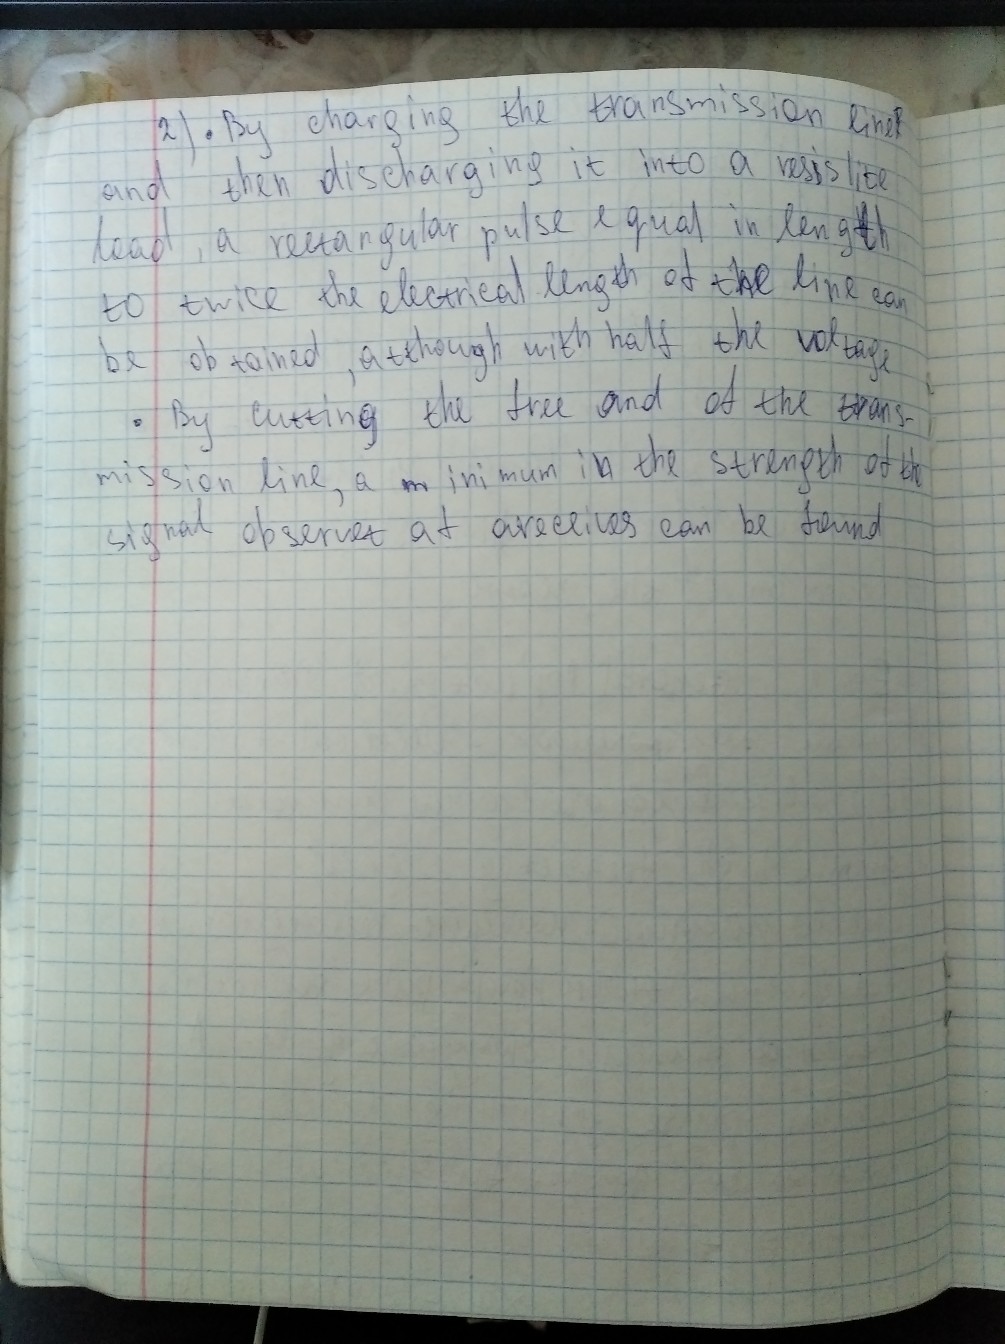 2). • By charging the transmission line
and then discharging it into a resislite
load, a rectangular pulse equal in length
to twice the electrical length of the line can
be obtained, although with half the voltage
• By cutting the free and of the trans-
mission line, a minimum in the strength of th
signal observet at areceives can be found